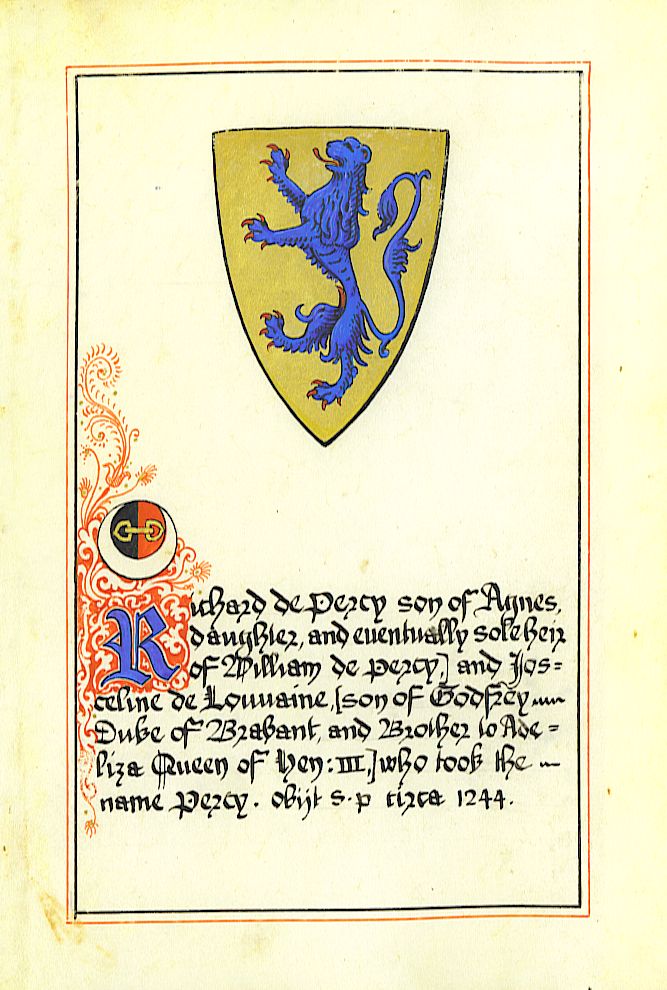 Richard de Percy son of Agnes,
daughter, and eventually sole heir
of William de percy,] and Jos=
celine de Louvaine, [son of Godfrey
Duke of Brabant, and Brother to Ade=
liza Queen of Hen: III,] who took the
name Percy. obijt s.p circa 1244.